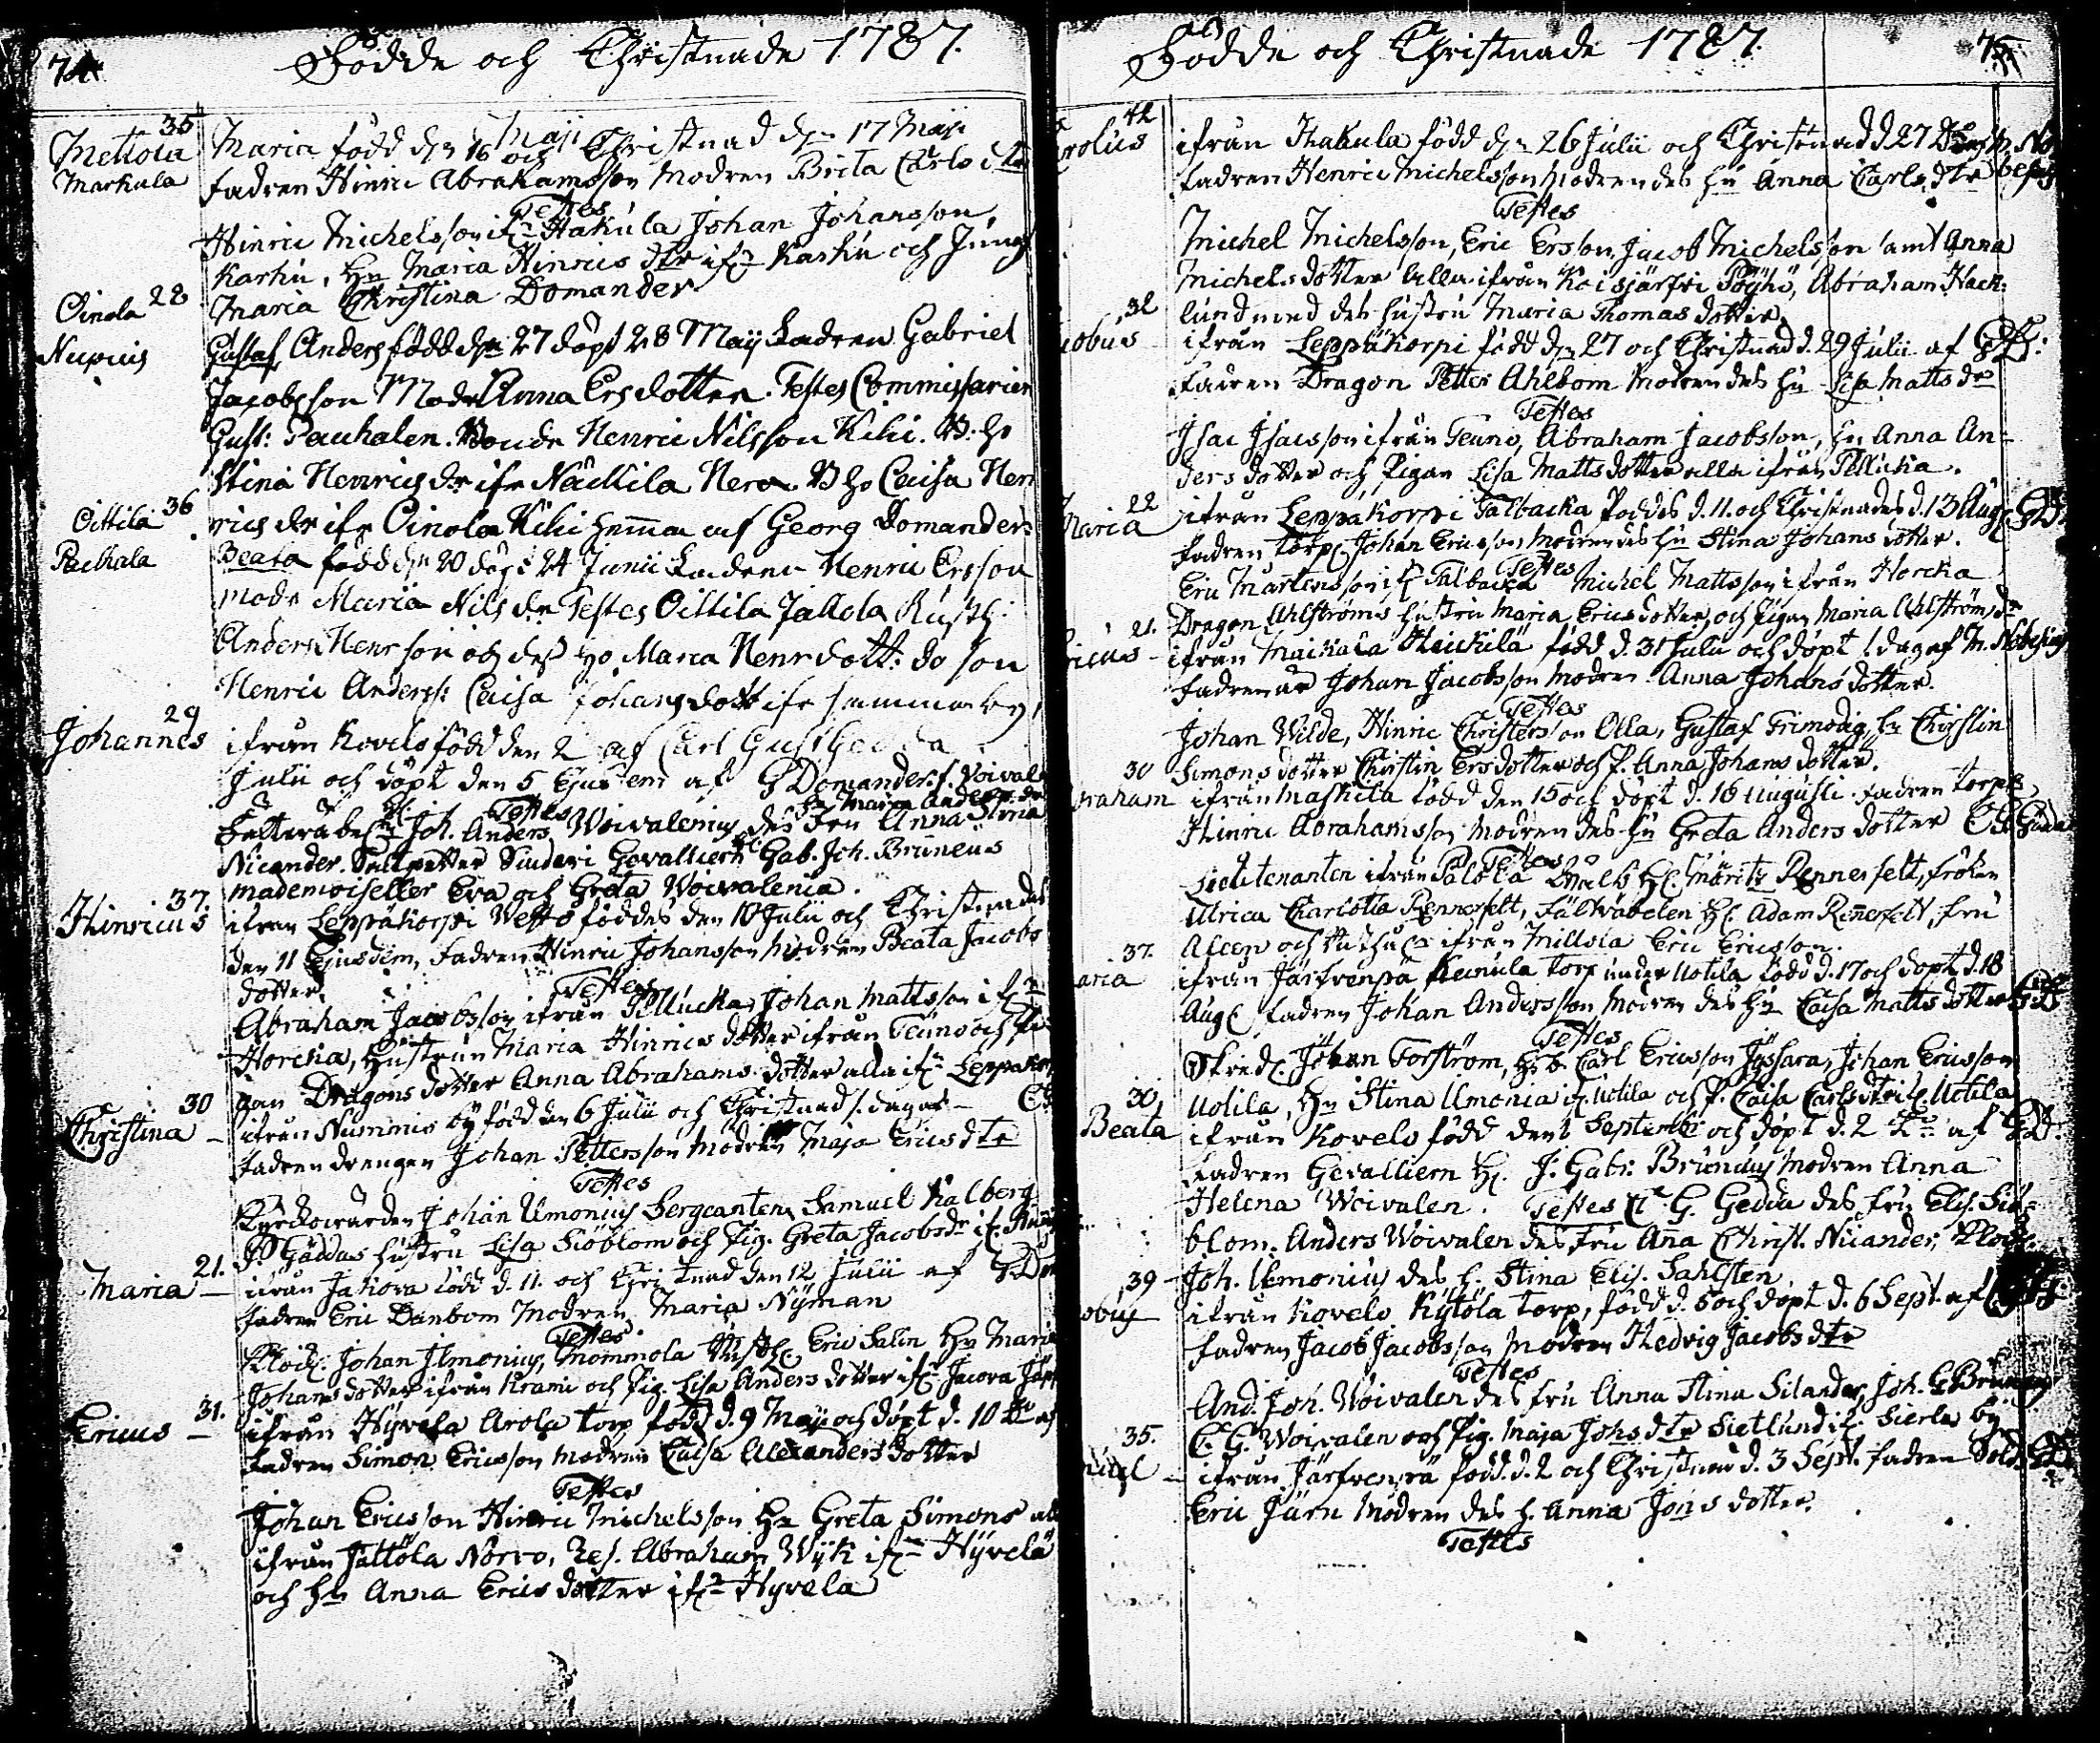 74.
Födde och Christnade 1787.
35
Mettola
Markula
Maria född d. 16 Maji och Christnad d. 17 Maji
fadren Hinric Abrahamsson Modren Brita Carls dtr
Testes
Hinric Michelsson ifr Hakula Johan Johansson,
Karhu, Hu Maria Hinrics dtr ifr Karhu och Jungf
Maria Christina Domander
Oinola 28
Gustaf Anders född den 27 döpt 28 Maij Fadren Gabriel
Jacobsson Modr Anna Ersdotter. Testes Commissarien
Gust: Pauhalen. Bonde Henric Nilsson Kihi. B: H:
Stina Henrics dr ifr Näckilä Hera B H: Caisa Hen
rics dr ifr Oinola Kihi hemma af Georg Domander:
Oittila 36
Beata född d. 20 döpt 24 Junii Fadren Henric Ersson
Modr Maria Nils dr Testes Oittila Jallola Rusth:
Anders Henrsson och dess Ho Maria Henrdott: do son
Henric Anderss: Caisa Johansdott ifr samma by,
29
Johannes
ifrån Kovelo född den 2 af Carl Gust Gedda
Julii och döpt den 5 Ejusdem af G Domander f. Woival
Testes
Joh. Anders Woivalenius des Fru Anna Stina
Nicander. Gevalliern Gab. Joh. Bruneus
Mademoiseller Eva och Greta Woivalenia.
37.
Hinricus
ifrån Leppäkorpi föddes den 10 Julii och Christnades
den 11 Ejusdem, Fadren Hinric Johansson Modren Beata Jacobs
dotter.
Testes
Abraham Jacobsson ifrån Pellucka, Johan Mattsson ifr
Horcka, Hustrun Maria Hinrics dotter ifrån Teuno och Pi
gan Dragons dotter Anna Abrahams dotter alla ifr Leppäkor
30
Christina
ifrån Nummis by född den 6 Julii och Christnad s. dagar
Fadren drengen Johan Pettersson Modren Maja Erics dtr
Testes
Kyrckowärden Johan Umonius Sergeanten Samuel Kalberg
Gäddas hustru Lisa Siöblom och Pig. Greta Jacobs dr
21.
Maria
ifrån Jakova född d. 11. och Christnad den 12 Julii af G.Dom
fadren Eric Danbom Modren Maria Nyman
Testes
Klock. Johan Ilmonius, Mommola Rusth Eric Salin Hu Maria
Johans dotter ifrån Krami och Pig. Lisa Anders dotter ifr Jacova
31.
Ericus
ifrån Hyvela Arola torp född d. 9 Maji och döpt d. 10 dto af
Fadren Simon Ericsson Modren Caisa Alexanders dotter
Testes
Johan Ericsson Hinric Michelsson Hu Greta Simons
ifrån Jattöla Norvo, Ref. Abraham Wyk ifr Hyvelä
och Hu Anna Erics dotter ifr Hyvela
Födde och Christnade 1787.
75.
42
arolus
ifrån Hakula född d. 26 Julii och Christnad d 27
Fadren Henric Michelsson Modren des Hu Anna Carls dtr
Testes
Michel Michelsson, Eric Ersson, Jacob Michelsson samt Anna
Michels dotter alla ifrån Koisjärfvi Pöyhö, Abraham Hack:
lund med des hustru Maria Thomas dotter
32
cobus
ifrån Leppäkorpi född d. 27 och Christnad d. 29 Julii af
Fadren Dragon Petter Ahlbom Modren des Hu Lisa Matts dr
Testes
Isac Isacsson ifrån Teuno, Abraham Jacobsson, Hu Anna An-
ders dotter och Pigan Lisa Mattsdotter alla ifrån Pellucka.
22
Maria
ifrån Leppäkorpi Talbacka föddes d. 11. och Christnades d. 13 Aug.
Fadren torp. Johan Ericsson Modren des Hu Stina Johans dotter.
Testes
Eric Mårtensson ifr Talbacka Michel Mattsson ifrån Horcka
Dragon Ahlströms Hustru Maria Ericsdotter, och Pigan Maria Ahlströms dr
21.
ricus
ifrån Maikala Heickilä född d. 31 Julii och döpt s. dag af
Fadren är Johan Jacobsson Modren Anna Johans dotter.
Testes
Johan Wilde, Hinric Christersson Olla, Gustaf Frimodig, Hu Christin
Simons dotter Christin Ersdotter och P. Anna Johans dotter.
30
braham
ifrån Maskila född den 15 och döpt d. 16 Augusti. Fadren torp.
Hinric Abrahamsson Modren des Hu Greta Anders dotter
Testes
Lieutenanten ifrån Palola Mauritz Rennerfelt, fröken
Ulrica Charlotta Rennerfelt, Adam Rennerfelt, Fru
ifrån Millola Eric Ericsson.
37.
aria
ifrån Järfvenpä torp under Uotila född d. 17 och döpt d. 18
Aug. Fadren Johan Andersson Modren des Hu Caisa Matts dotter
Testes
Skred. Johan Torström, Carl Ericsson Jyssara, Johan Ericsson
Uotila, Hu Stina Umonia ifr Uotila och P. Caisa Carls dtr ifr Uotila
30.
Beata
ifrån Kovelo född den 1 Septembr och döpt d. 2 af
Fadren Gevalliern H. J: Gabr: Bruneus Modren Anna
Helena Woivalen. Testes C. G. Gedda des Fru Elis. Siö-
blom. Anders Woivalen des Fru Ana Christ. Nicander,
Joh. Ilmonius des H. Stina Elis. Sahlsten
39
obus
ifrån Kovelo Kytöla torp, född d. 5 och döpt d. 6 Sept. af
Fadren Jacob Jacobsson Modren Hedvig Jacobs dtr
Testes
And. Joh. Woivalen des Fru Anna Stina Silander, Joh. G Bruneus
C. G. Woivalen och Pig. Maja Johs dtr Sietlund ifr Sierla by
35.
ifrån Järfvenpä född d. 2 och Christnad d. 3 Sept. fadren Sold.
Eric Järn Modren des H. Anna Jons dotter.
Testes